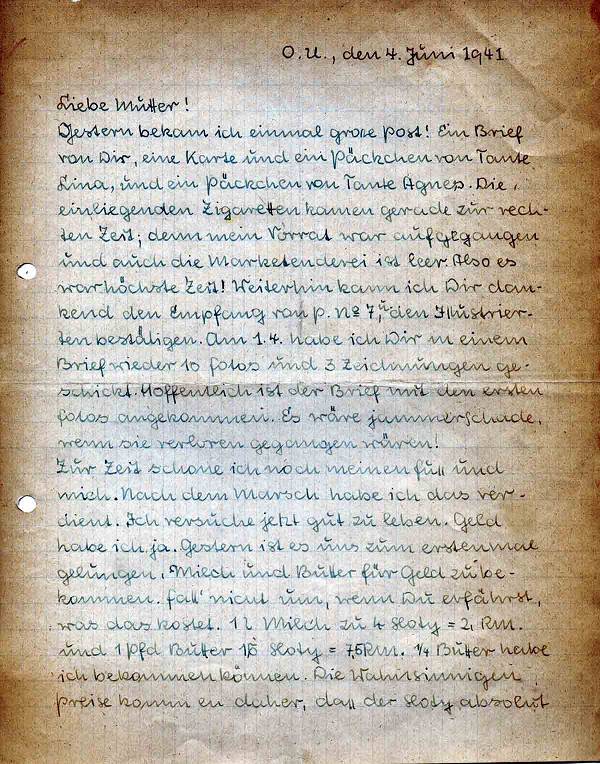 O.U., den 4. Juni 1941
Liebe Mutter!
Gestern bekam ich einmal große Post! Ein Brief
von Dir, eine Karte und ein Päckchen von Tante
Lina, und ein Päckchen von Tante Agnes. Die
einliegenden Zigaretten kamen gerade zur rech-
ten Zeit, denn mein Vorrat war aufgegangen
und auch die Marketenderei ist leer. Also es
war höchste Zeit! Weiterhin kann ich Dir dan-
kend den Empfang von P. No 7, u. den Illustrier-
ten bestätigen. Am 1.4. habe ich Dir in einem
Brief wieder 10 Fotos und 3 Zeichnungen ge-
schickt. Hoffentlich ist der Brief mit den ersten
Fotos angekommen. Es wäre jammerschade,
wenn sie verloren gegangen wären!
Zur Zeit schone ich noch meinen Fuß und
mich. Nach dem Marsch habe ich das ver-
dient. Ich versuche jetzt gut zu leben. Geld
habe ich ja. Gestern ist es uns zum erstenmal
gelungen, Milch und Butter für Geld zu be-
kommen. Fall' nicht um, wenn Du erfährst,
was das kostet. 1 l Milch zu 4 Sloty = 2, RM.
und 1 Pfd Butter 15 Sloty = 7,5 RM. 1/4 Butter habe
ich bekommen können. Die Wahnsinnigen
Preise kommen daher, daß der Sloty absolut